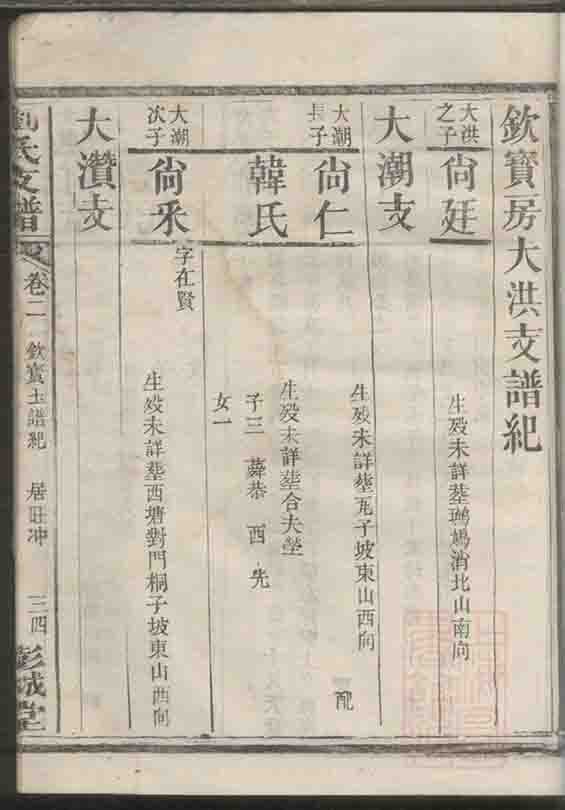 欽寶房大洪支譜紀
大洪之子
尙廷
生歿未詳塟鸂鳩消北山南向
大潮支
大潮長子
尙仁
生歿未詳塟瓦子坡東山西向
配
韓氏
生歿未詳塟合夫塋
子三 蕣恭 酉 先
女一
大潮次子
尙釆
字在賢
生歿未詳塟西塘對門桐子坡東山西向
大瓚支
劉氏支譜
卷二
欽寳土譜紀
居旺冲
三四
彭城堂